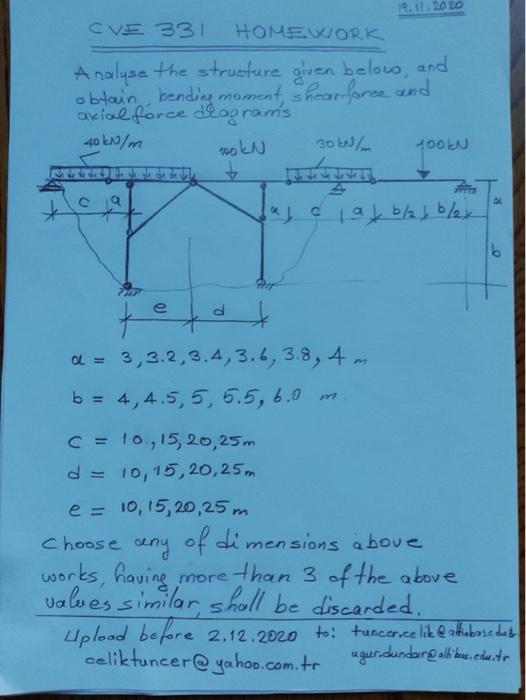 19.11.2020
CVE 331 HOMEWORK
Analyse the structure given below, and
obtain bending moment, shearforce and
axialforce diagrams
40 kN/m 100 kN 30 kN/m 100 kN
c a a c a b/2 b/2 a
b
e d
a = 3, 3.2, 3.4, 3.6, 3.8, 4 m
b = 4, 4.5, 5, 5.5, 6.0 m.
c = 10, 15, 20, 25m
d = 10, 15, 20, 25m
e = 10, 15, 20, 25 m
Choose any of dimensions above
works, having more than 3 of the above
values similar, shall be discarded.
Upload before 2.12.2020 to:
celiktuncer@yahoo.com.tr